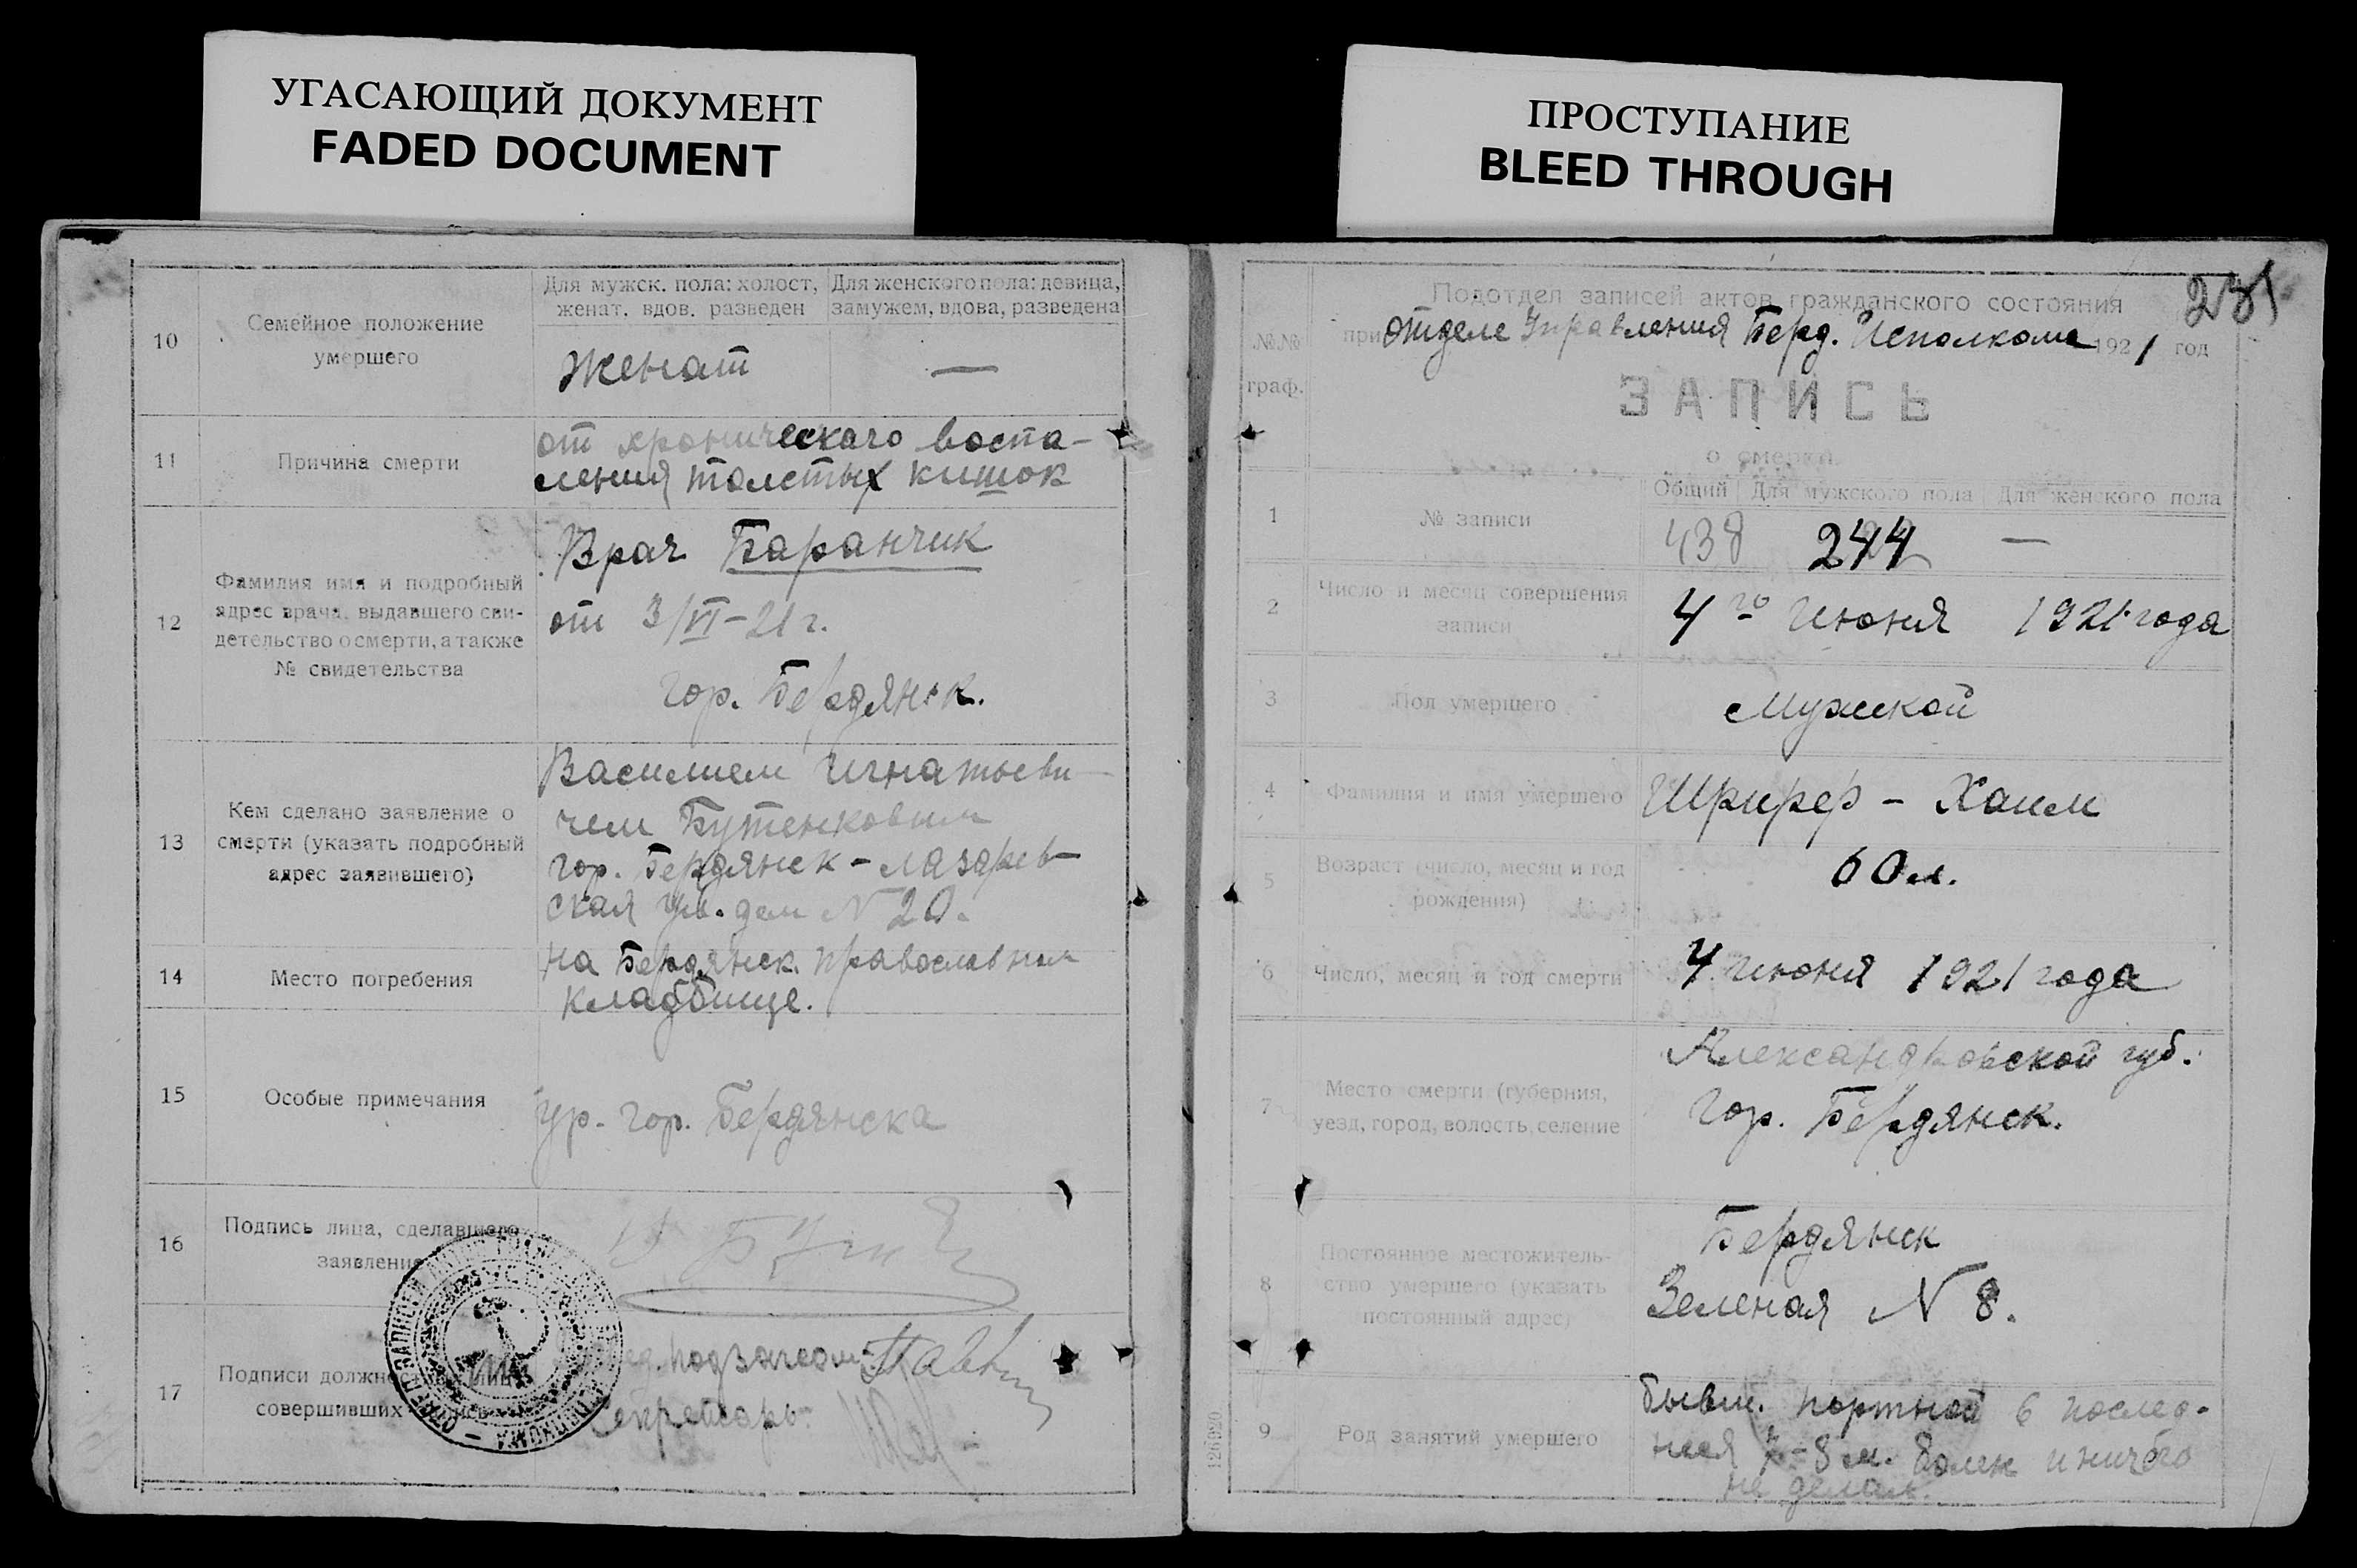 УГАСАЮЩИЙ ДОКУМЕНТ
FADED DOCUMENT
ПРОСТУПАНИЕ
BLEED THROUGH
10
Семейное положение
умершего
Для мужск. пола: холост,
женат, вдов. разведен
Для женского пола: девица,
замужем, вдова, разведена
Женат
—
11
Причина смерти
от хроническаго воспа-
ления толстых кишок
12
Фамилия имя и подробный
адрес врача, выдавшего сви-
детельство о смерти, а также
№ свидетельства
Врач Баранчик
от 3/VI-21 г.
гор. Бердянск.
13
Кем сделано заявление о
смерти (указать подробный
адрес заявившего)
Василием Игнатьеви-
чем Бутенковым
гор. Бердянск - Лазарев-
ская ул. дом N 20.
14
Место погребения
на Бердянск. православном
кладбище.
15
Особые примечания
ур. гор. Бердянска
16
Подпись лица, сделавшего
заявление
17
Подписи должностных лиц,
совершивших запись
подзагсом
Секретарь
231
№№
граф.
Подотдел записей актов гражданского состояния
при Отделе Управления Берд. Исполкома 1921 год
ЗАПИСЬ
о смерти.
1
№ записи
Общий
Для мужского пола
Для женского пола
438
244
—
2
Число и месяц совершения
записи
4го Июня 1921 года
3
Пол умершего
Мужской
4
Фамилия и имя умершего
Шрифер - Хаим
5
Возраст (число, месяц и год
рождения)
60 л.
6
Число, месяц и год смерти
4 июня 1921 года
7
Место смерти (губерния,
уезд, город, волость, селение
Александровской губ.
гор. Бердянск.
8
Постоянное местожитель-
ство умершего (указать
постоянный адрес)
Бердянск
Зеленая N 8.
9
Род занятий умершего
бывш. портной в послед-
ния 7-8 м. болен и ничего
не делал.
126920